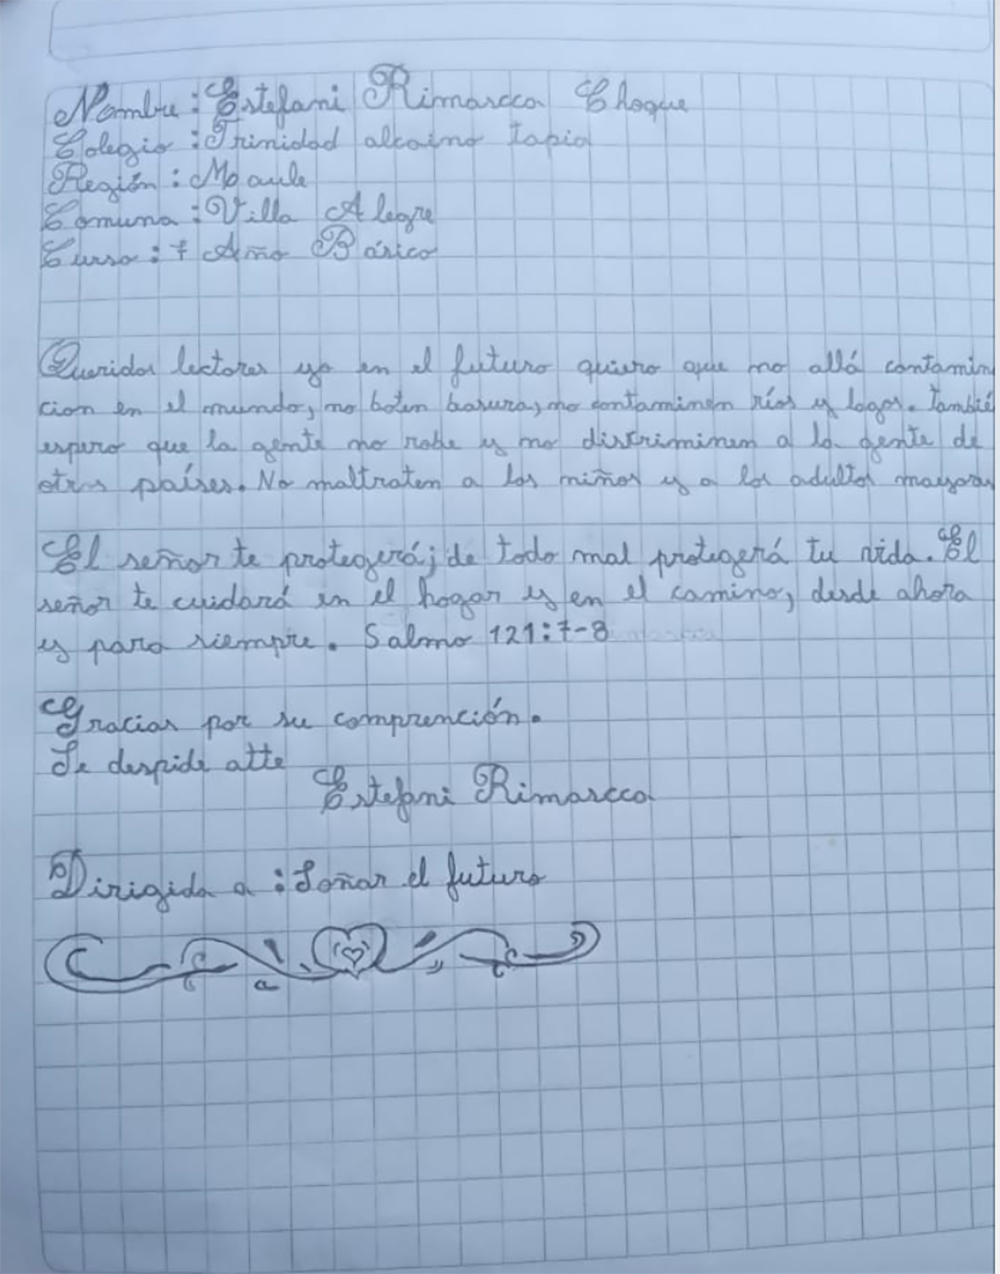 Nombre : Estefani Rimarcca Choque
Colegio : Trinidad alcaino tapia
Región : Maule
Comuna : Villa Alegre
Curso : 7 Año Básico
Queridos lectores yo en el futuro quiero que no allá contamin
cion en el mundo, no boten basura, no contaminen ríos y lagos. Tambié
espero que la gente no robe y no discriminen a la gente de
otros países. No maltraten a los niños y a los adultos mayores
El señor te protegerá; de todo mal protegerá tu vida. El
señor te cuidará en el hogar y en el camino, desde ahora
y para siempre. Salmo 121:7-8
Gracias por su comprención.
Se despide atte
Estefani Rimarcca
Dirigida a : Soñar el futuro